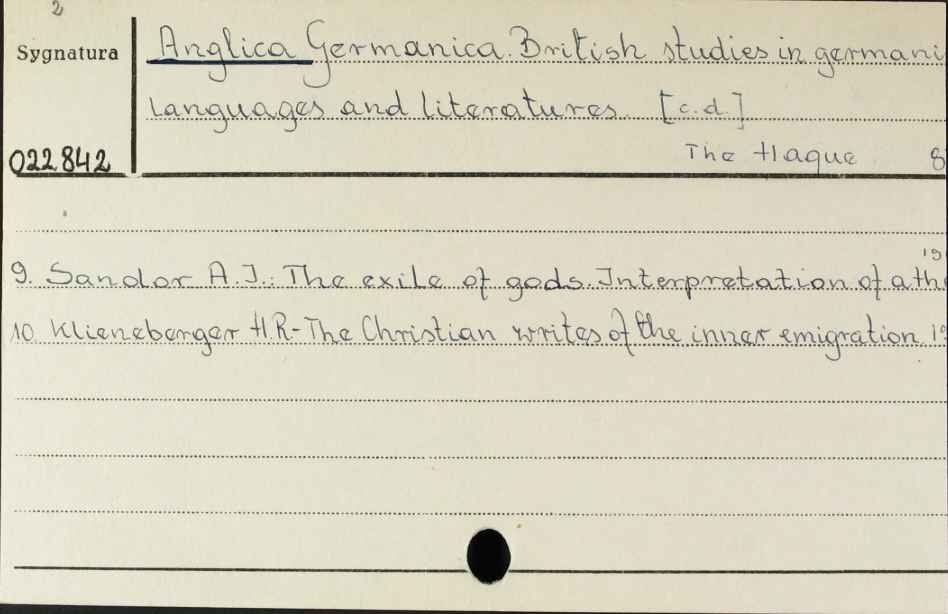 2
Sygnatura
Anglica Germanica. British studies in germani
languages and literatures. [c.d.]
022842
The Haque 8
19
9. Sandor A.I.: The exile of gods. Interpretation of a the
10. Klieneberger H.R- The Christian writes of the inner emigration. 19